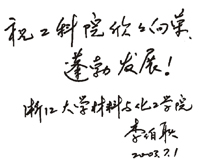 祝工科院欣欣向荣,
蓬勃发展!
浙江大学材料与化工学院
李伯耿
2003.7.1